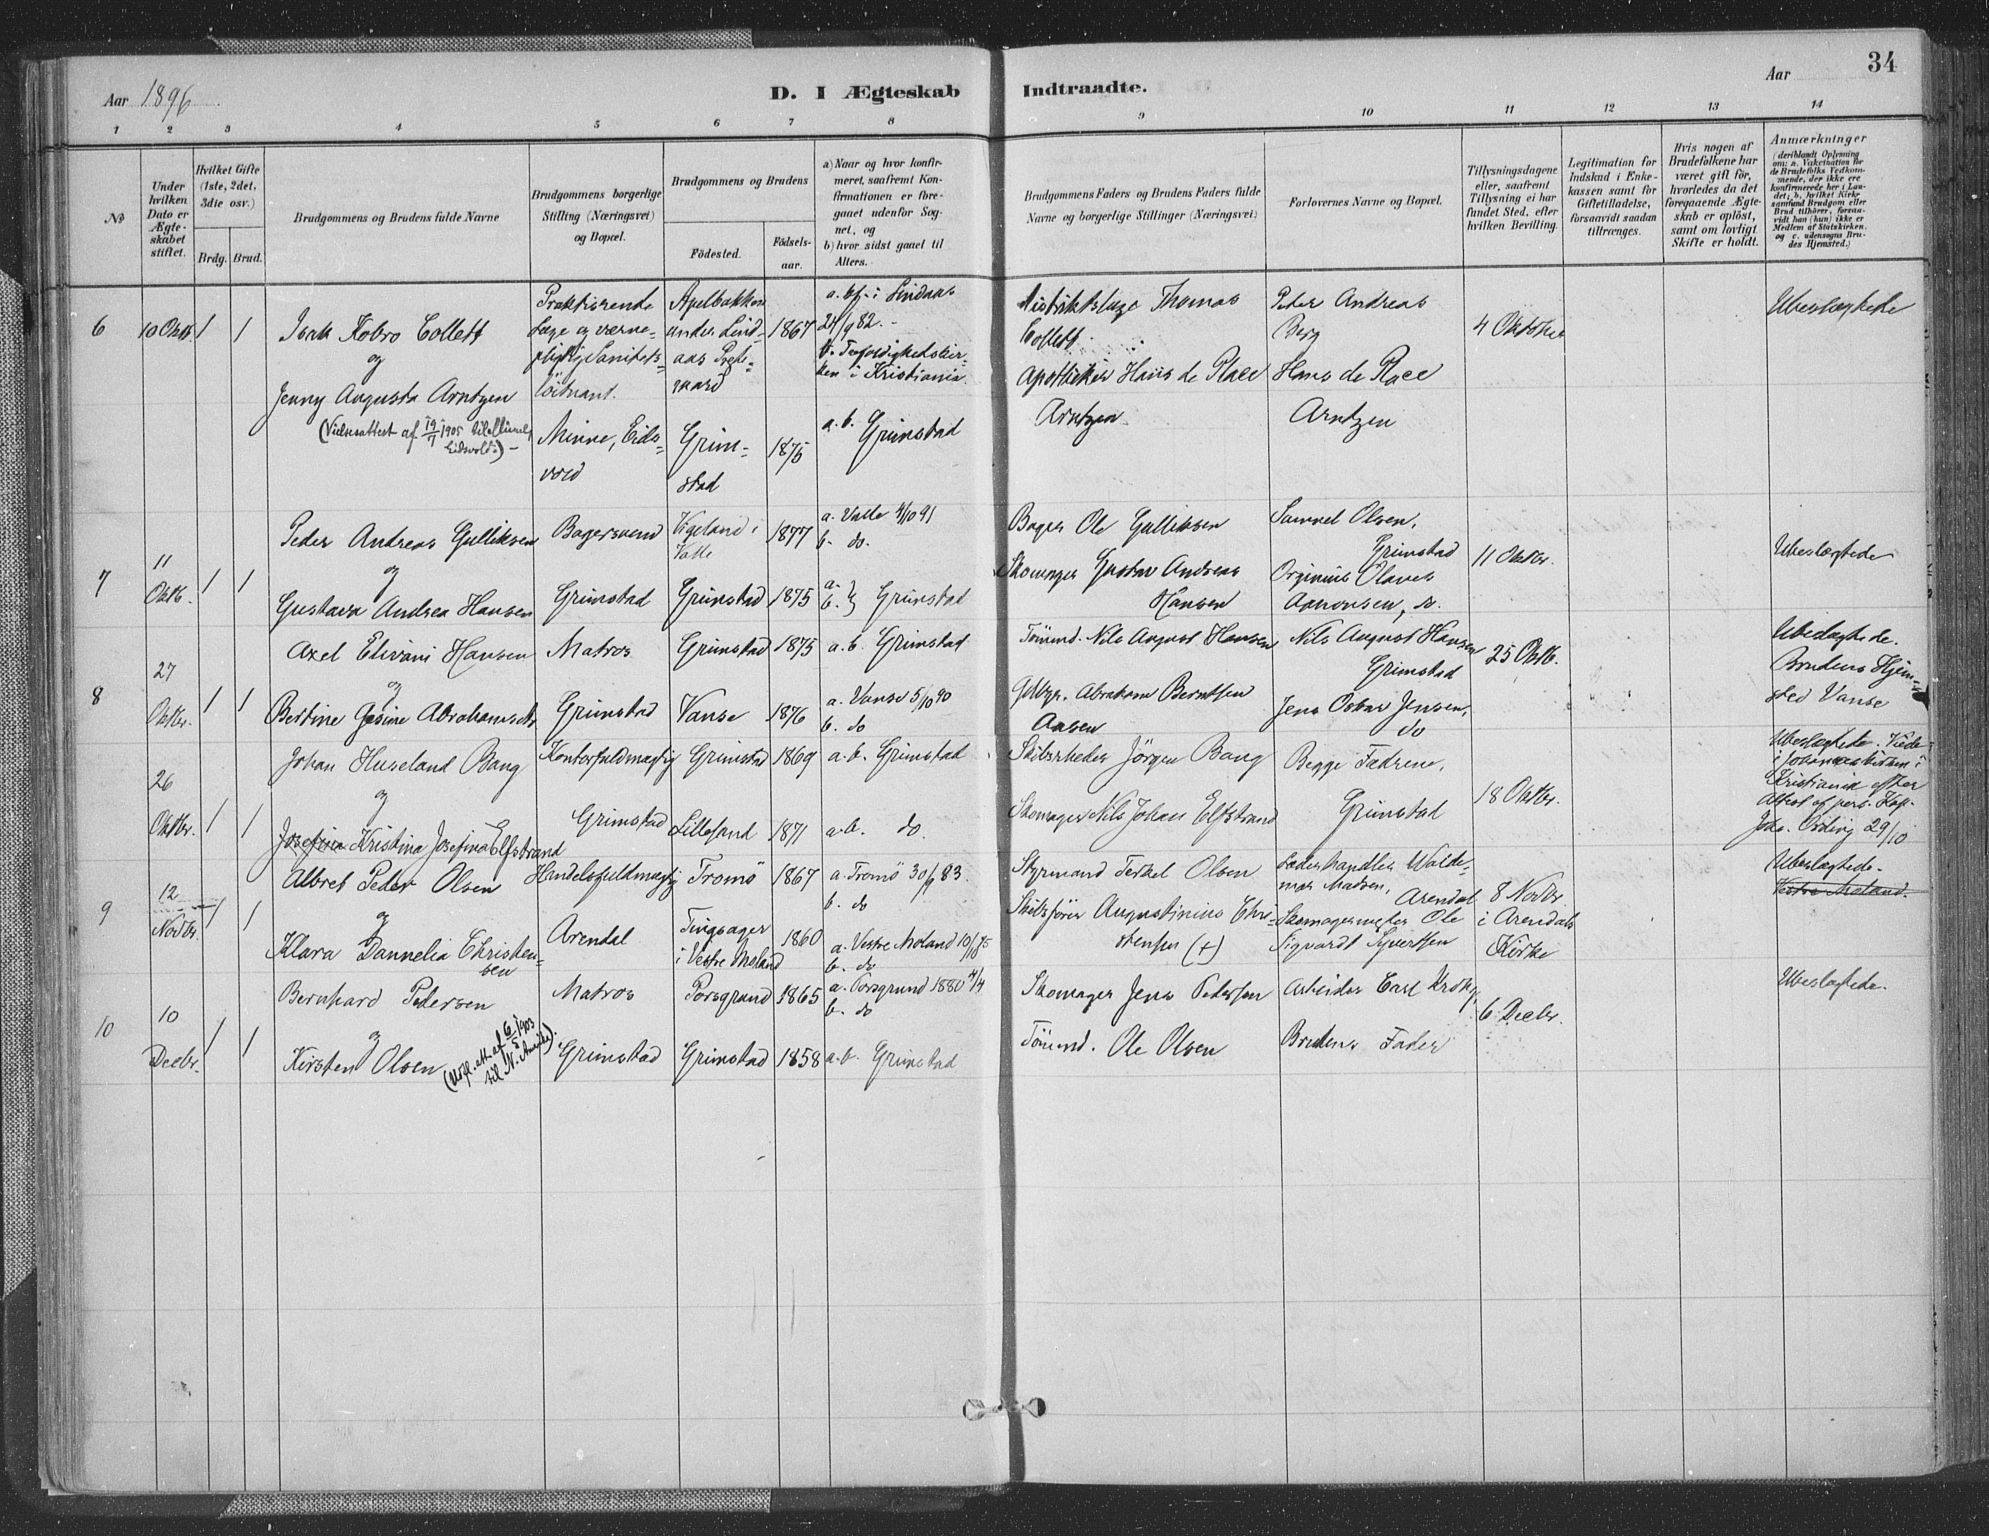 34
Aar 1896.
D. I Ægteskab
Indtraadte.
Aar
1 2 3 4 5 6 7 8
9 10 11 12 13 14
No
Under hvilken Dato er Ægteskabet stiftet.
Hvilket Gifte (1ste, 2det, 3die osv.)
Brdg. Brud.
Brudgommens og Brudens fulde Navne
Brudgommens borgerlige Stilling (Næringsvei) og Bopæl.
Brudgommens og Brudens
Fødested.
Fødselsaar.
a) Naar og hvor konfirmeret, saafremt Konfirmationen er foregaaet udenfor Sognet, og
b) hvor sidst gaaet til Alters.
Brudgommens Faders og Brudens Faders fulde Navne og borgerlige Stillinger (Næringsvei)
Forlovernes Navne og Bopæl.
Tillysningsdagene eller, saafremt Tillysning ei har fundet Sted, efter hvilken Bevilling.
Legitimation for Indskud i Enkekassen samt for Giftetilladelse, forsaavidt saadan tiltrænges.
Hvis nogen af Brudefolkene har været gift før, hvorledes da det foregaaende Ægteskab er opløst, samt om lovligt Skifte er holdt.
Anmærkninger
(deriblandt Oplysning om: a. Vakcination for de Brudefolks Vedkommende, der ikke ere konfirmerede her i Landet; b. hvilket Kirkesamfund Brudgom eller Brud tilhører, forsaavidt han (hun) ikke er Medlem af Statskirken, og c. udensogns Brudes Hjemsted.)
6
10 Oktb
1 1
Isak Kobro Collett
og
Jenny Augusta Arntzen
(Vielsesattest af 19/9 1905 til Minne, Eidsvold.)-
Praktiserende Læge og værnepligtig Sanitetsløitnant.
Minne, Eidsvold
Apelbakken under Lindaas Prestegaard
1867
Grimstad
1875
a. bf. i Lindaas 24/9 82.-
b. Trefoldighedskirken i Kristiania.
a. b. Grimstad
Distriktslæge Thomas Collett
Apotheker Hans de Place Arntzen
Peder Andreas Berg
Hans de Place Arntzen
4 Oktober
Ubeslægtede
7
11 Oktb.
1 1
Peder Andreas Gulliksen
og
Gustava Andrea Hansen
Bagersvend
Grimstad
Vigeland i Valle
1877
Grimstad 1875
a. Valle 4/10 91
b. do.
a. b. } Grimstad
Bager Ole Gulliksen
Skomager Gustav Andreas Hansen
Samuel Olsen, Grimstad
Orginius Olaves Aanonsen, do.
11 Oktbr.
Ubeslægtede
8
27 Oktbr.
1 1
Axel Elivani Hansen
og
Bertine Gesine Abrahamsen
Matros
Grimstad
Grimstad 1875
Vanse 1876
a. b. Grimstad
a. Vanse 5/10 90
b. do
Tømmd. Nils August Hansen
Abraham Berntsen Aasen
Nils August Hansen Grimstad
Jens Oskar Jensen, do
25 Oktb.
Ubeslægtede.
Brudens Hjemsted Vanse
26 Oktbr.
1 1
Johan Huseland Bang
og
Josefina Kristina Josefina Elfstrand
Kontorfuldmægtig
Grimstad
Grimstad 1869
Lillesand 1871
a. b. Grimstad
a. b. do.
Skibsrheder Jörgen Bang
Skomager Nils Johan Elfstrand
Begge Fædrene,
Grimstad
18 Oktbr.
Ubeslægtede. Viede i Johanneskirken i Kristiania efter Attest af pers. Kap. Joh. Ording 29/10
9
12 Novbr.
1 1
Albret Peder Olsen
og
Klara Dannelia Christensen
Handelsfuldmægtig
Arendal
Tromö 1867
Tingsager i Vestre Moland 1860
a. Tromö 30/9 83.
b. do
a. Vestre Moland 10/10 75
b. do
Styrmand Terkel Olsen
Skibsfører Augustinius Christensen (+)
Læderhandler Waldemar Madsen, Arendal
Skomagermester Ole Sigvardt Syvertsen
8 Novbr. i Arendals Kirke
Ubeslægtede.
Vestre Moland.
10
10 Decbr.
1 1
Bernhard Pedersen
og
Kirsten Olsen
(Udfl. att. af 6/5 1903 til N. Amerika).
Matros
Grimstad
Porsgrund 1865
Grimstad 1858
a. Porsgrund 1880 4/4
b. do
a. b. Grimstad
Skomager Jens Pedersen
Tømmd. Ole Olsen
Arbeider Carl Krohg,
Brudens Fader
6 Decbr.
Ubeslægtede.